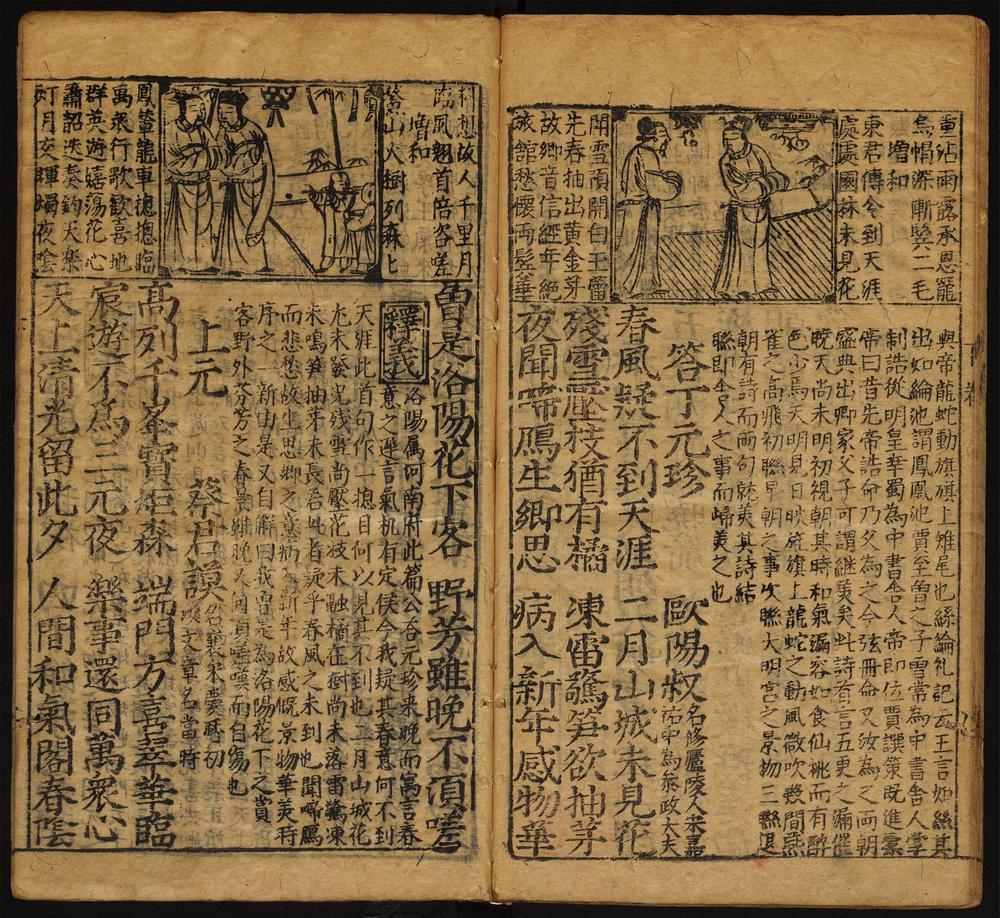 重沾雨露承恩寵
烏帽深漸鬢二毛
增和
東君傳令到天涯
處處園林未見花
先春抽出黃金芽
故鄉音信經年絶
旅館愁懷兩鬢華
龍蛇動旗旗上雉尾也絲綸礼記云王言如絲其
出如綸池謂鳳凰池賈至曾之子雪常為中書舍人掌
制誥從明皇幸蜀為中書舍人帝即位賈譔策既進稾
帝曰昔先帝誥命乃父為之今弦冊命又汝為之兩朝
盛典出卿家父子可謂継美矣此詩首言五更之漏催
暁天尚未明初視朝其時和氣漏容如食仙桃而有醉
色少焉天明見日映旌旗上龍蛇之動風微吹殿間燕
雀之高飛初聯早朝之事次聯大明宮之景物三聯退
朝有詩而両句就美其詩結
聯即舍人之事而歸美之也
答丁元珍 歐陽叔 名修廬陵人宋嘉祐中為叅政大夫
春風疑不到天涯 二月山城未見花
殘雪壓枝猶有橘 凍雷驚笋欲抽芽
夜聞啼鴈生鄉思 病入新年感物華
料想故人千里月
臨風翹首倍咨嗟
增和
鰲山火樹列森七
鳳輦龍車摠摠臨
萬衆行歌歡喜地
群英遊嬉蕩花心
簫韶迭奏鈞天樂
灯月交輝燭夜陰
曾是洛陽花下客 野芳雖晚不須嗟
釋義 洛陽属河南府此篇公荅元珍來晚而寓言春
意之遲言氣机有定侯今我疑其春意何不到
天涯此首句作一摠目何以見其不到也二月山城花
尤未發況残雪尚壓花枝未融橘在樹尚未落雷驚凍
未鳴笋抽芽未長吾此者疑乎春風之未到也聞啼鴈
而悲愁故生思鄉之意病入新年故感慨景物華美時
序之一新由是又自解曰我曾是為洛陽花下之賞
客野外芬芳之春景雖晚天何須嗟嘆而自傷也
上元 蔡君謨 名襄宋慶曆初以文章名當時
高列千峯寶炬森 端門方喜翠華臨
宸遊不為三元夜 樂事還同萬衆心
天上清光留此夕 人間和氣閣春陰